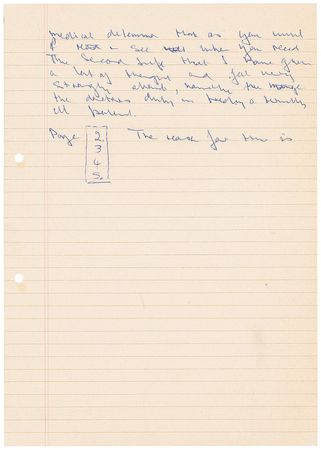 medical dilemma that as you will
see when you read
the second life that I have given
a lot of thought and feel very
strongly about, namely the
the doctors duty in treating a terminally
ill patient.
Page 2 The reason for this is
3
4
5.